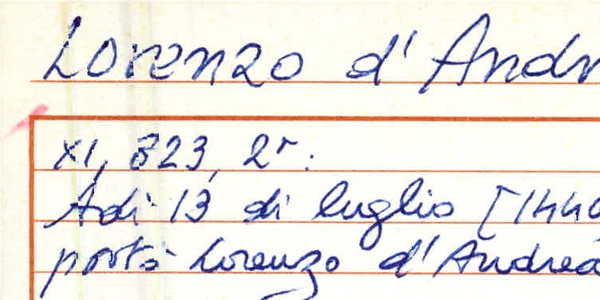 Lorenzo d'Andr
XI, 823, 2r:
Adi 13 di luglio [144
portò Lorenzo d'Andrea